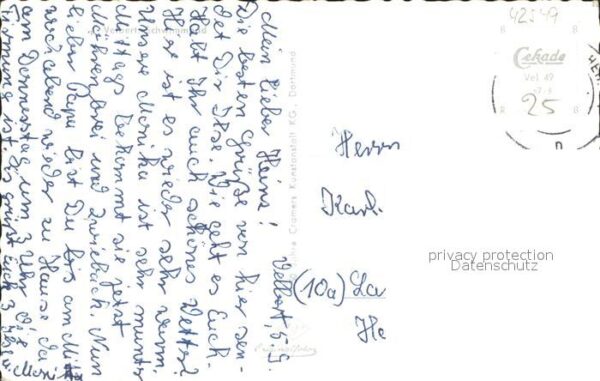 Velbert, 5.5.
Mein lieber Heinz!
Die besten Grüße von hier sen-
det Dir Ilse. Wie geht es Euch.
Habt Ihr auch schönes Wetter?
Hier ist es wieder sehr warm.
Unsere Monika ist sehr munter
Mittags bekommt sie jetzt
Möhrenbrei und Zwieback. Nun
lieber Papa bist Du bis am Mitt
wochabend wieder zu Hause da
am Donnerstag um 3 Uhr die
ist. Es grüßt Euch
Moni
Velbert
Cramers Kunstanstalt KG., Dortmund
42549
Cekade
Vel 49
25
Herrn
Karl.
(10a) La
He
privacy protection
Datenschutz